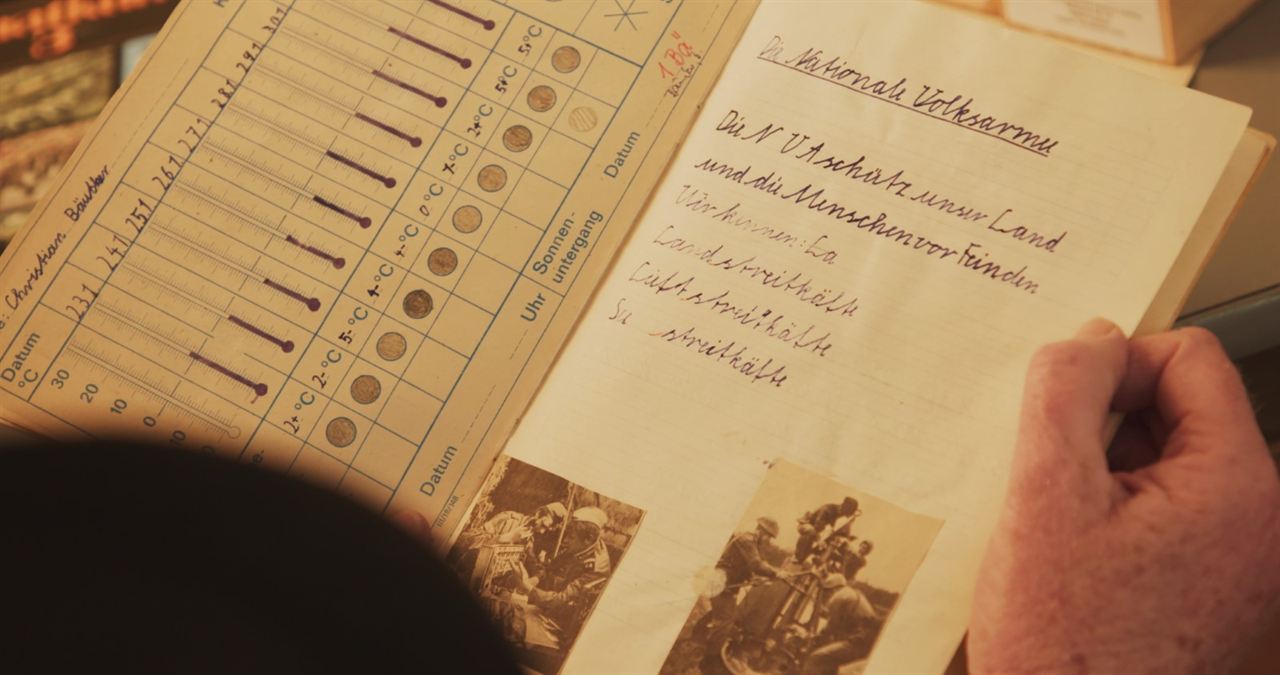 : Christian Bäuster
Datum
°C
30
20
10
0
10
23 1
24 1
25 1
26 1
27 1
28 1
29 1
30 1
2+ °C
2- °C
5- °C
4- °C
4- °C
0 °C
1- °C
2+ °C
5+ °C
5+ °C
Datum
Uhr
Sonnen-
untergang
Datum
Die Nationale Volksarmee
Die N VA schütz unser Land
und die Menschen vor Feinden
Wir kennen: La
Landstreitkäfte
Lüftstreitkäfte
Se streitkäfte